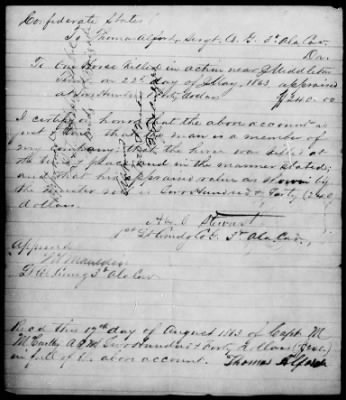 Confederate States
To Thomas Alford, Sergt. Co. G. 3d Ala Cav.
Dr.
To One Horse killed in action near Middleton
Tenn. on 22d day of May, 1863, appraised
at Two Hundred & Forty dollars $240.00
I certify on honor that the above account is
just & true, that the man is a member of
my company, that the horse was killed at
the time & place and in the manner stated;
and that his appraised value as shown by
the muster roll is Two Hundred & Forty (240)
dollars.
Stewart
1st Lt Comdg Co G. 3d Ala Cav.
Approved
3d Ala Cav
Recd this 19th day of August 1863 of Capt. M.
A Q M Two Hundred & Forty Dollars
in full of the above account. Thomas Alford